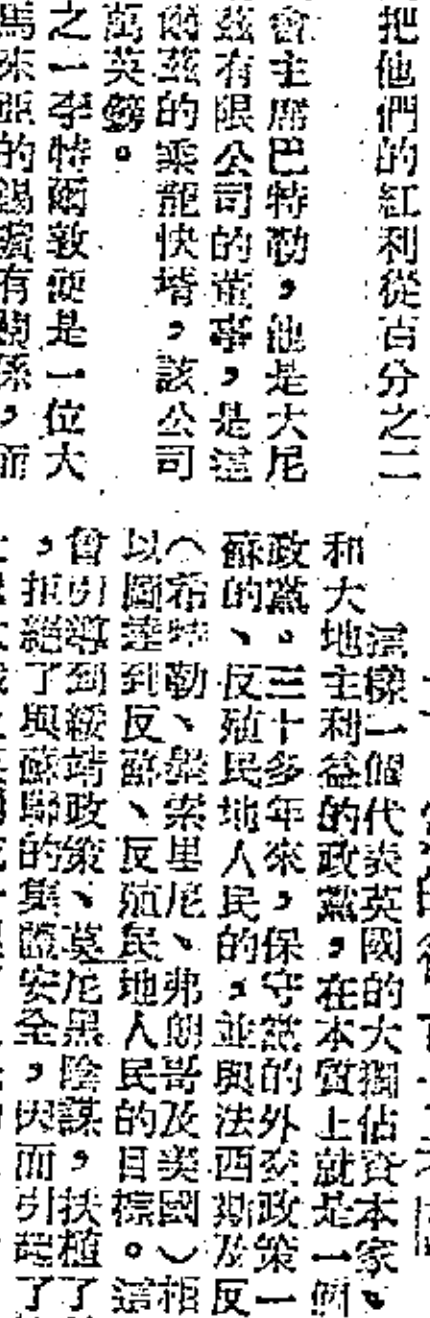 把他們的紅利從百分之二
會主席巴特勒，他是大尼
茲有限公司的董事，是這
爾茲的乘龍快壻，該公司
萬英鎊。
之一李特爾敦便是一位大
馬來亞的錫礦有關係，前
這樣一個代表英國的大獨佔資本家、
和大地主利益的政黨，在本質上就是一個
政黨。三十多年來，保守黨的外交政策一
蘇的、反殖民地人民的，並與法西斯及反
（希特勒、墨索里尼、弗朗哥及美國）相
以圖達到反蘇、反殖民地人民的目標。這
曾引導到綏靖政策、莫尼黑陰謀，扶植了
，拒絕了與蘇聯的集體安全，因而引起了